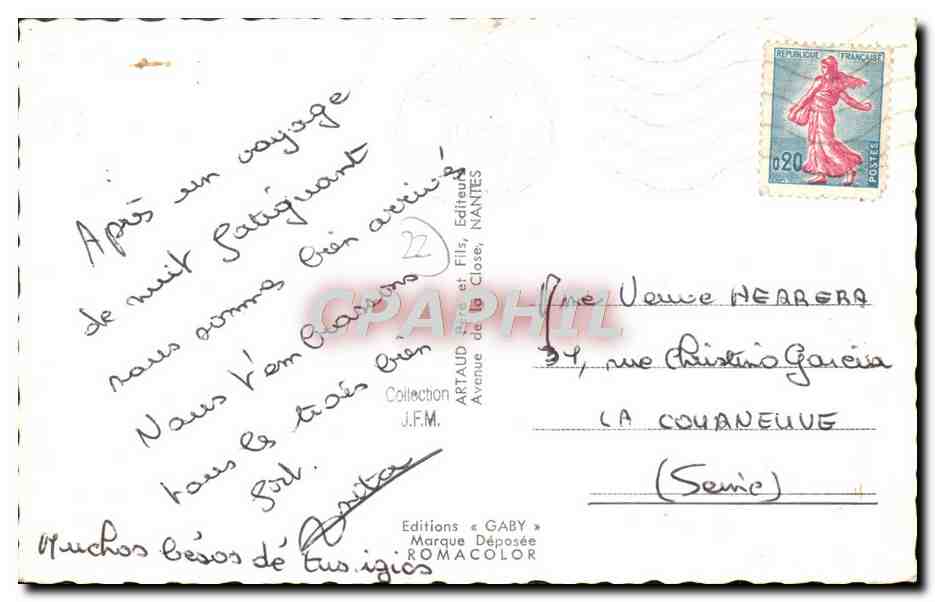 Après un voyage
de nuit fatiguant
nous somme bien arrivé
Nous t'embrassons
tous les trois bien
fort.
Anita
Muchos bésos dé tus igios
22
Collection
J.F.M.
ARTAUD Père et Fils, Editeurs
Avenue de la Close, NANTES
Editions « GABY »
Marque Déposée
ROMACOLOR
CPAPHIL
REPUBLIQUE FRANÇAISE
0,20
POSTES
Mme Veuve HERRERA
34, rue Christino Garcia
LA COURNEUVE
(Seine)